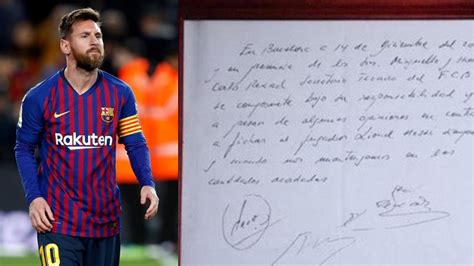 Rakuten
10
En Barcelona a 14 de diciembre del
y en presencia de los Srs. Minguella y
Carles Rexach Secretario Técnico del F.C.B
se compromete bajo su responsabilidad y
a pesar de algunas opiniones en contra
a fichar al jugador Lionel
y cuando nos mantengamos en las
cantidades acordadas